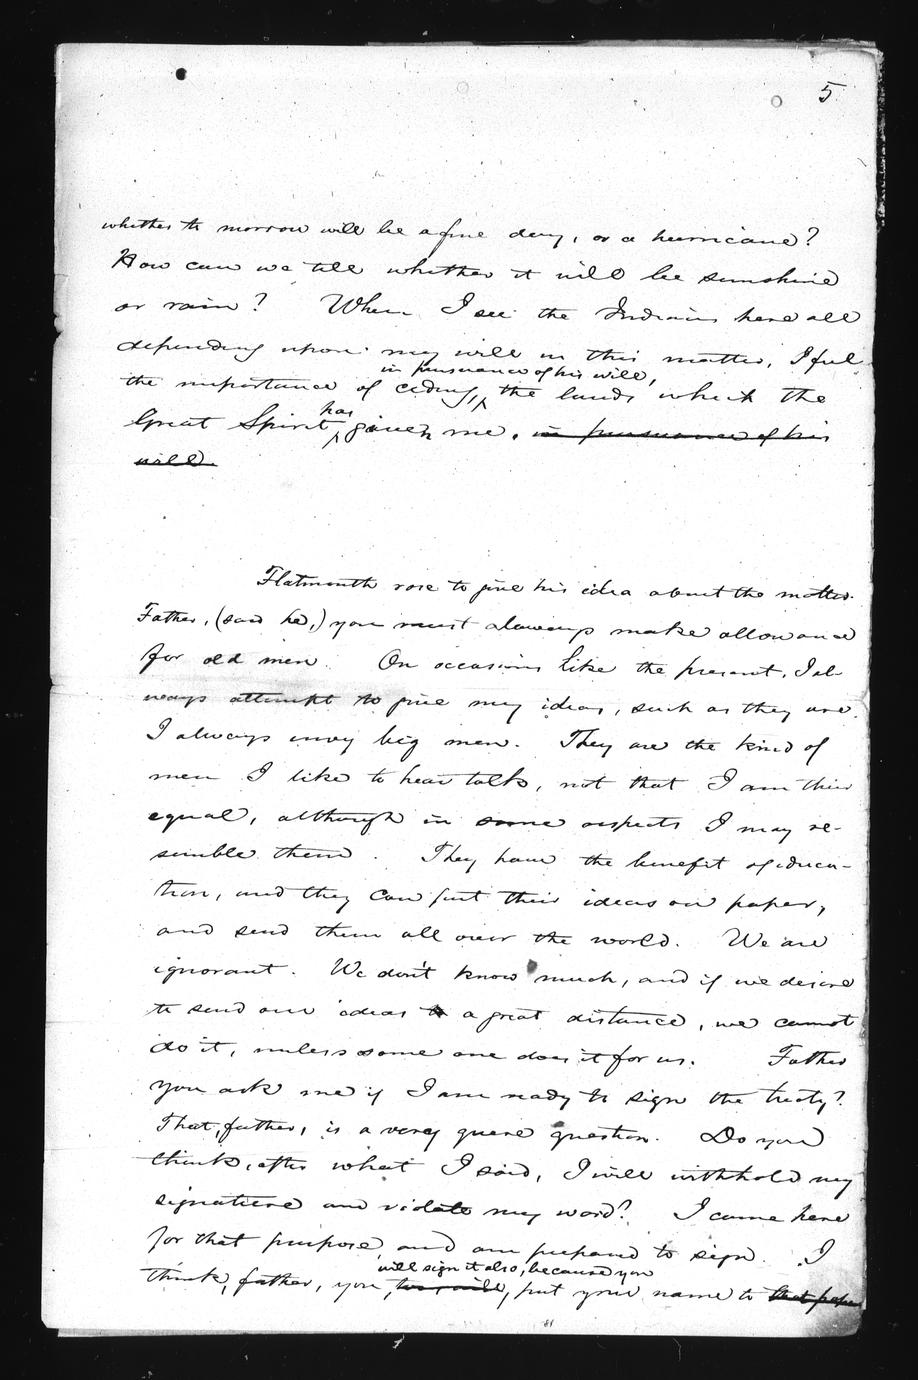 5
whether to morrow will be a fine day, or a hurricane?
How can we tell whether it will be sunshine
or rain? When I see the Indians here all
depending upon my will in this matter, I feel
in pursuance of his will,
the importance of ceding, ^ the lands which the
has
Great Spirit ^ given me. in pursuance of his
will.
Flatmouth rose to give his idea about the matter.
Father, (said he,) you must always make allowance
for old men. On occasions like the present, I al-
ways attempt to give my ideas, such as they are.
I always envy big men. They are the kind of
men I like to hear talk, not that I am their
equal, although in some respects I may re-
semble them. They have the benefit of educa-
tion, and they can put their ideas on paper,
and send them all over the world. We are
ignorant. We don't know much, and if we desire
to send our ideas to a great distance, we cannot
do it, unless some one does it for us. Father
you ask me if I am ready to sign the treaty?
That, father, is a very queer question. Do you
think, after what I said, I will withhold my
signature and violate my word? I came here
for that purpose, and am prepared to sign. I
will sign it also, because you
think, father, you, too, will, put your name to that paper